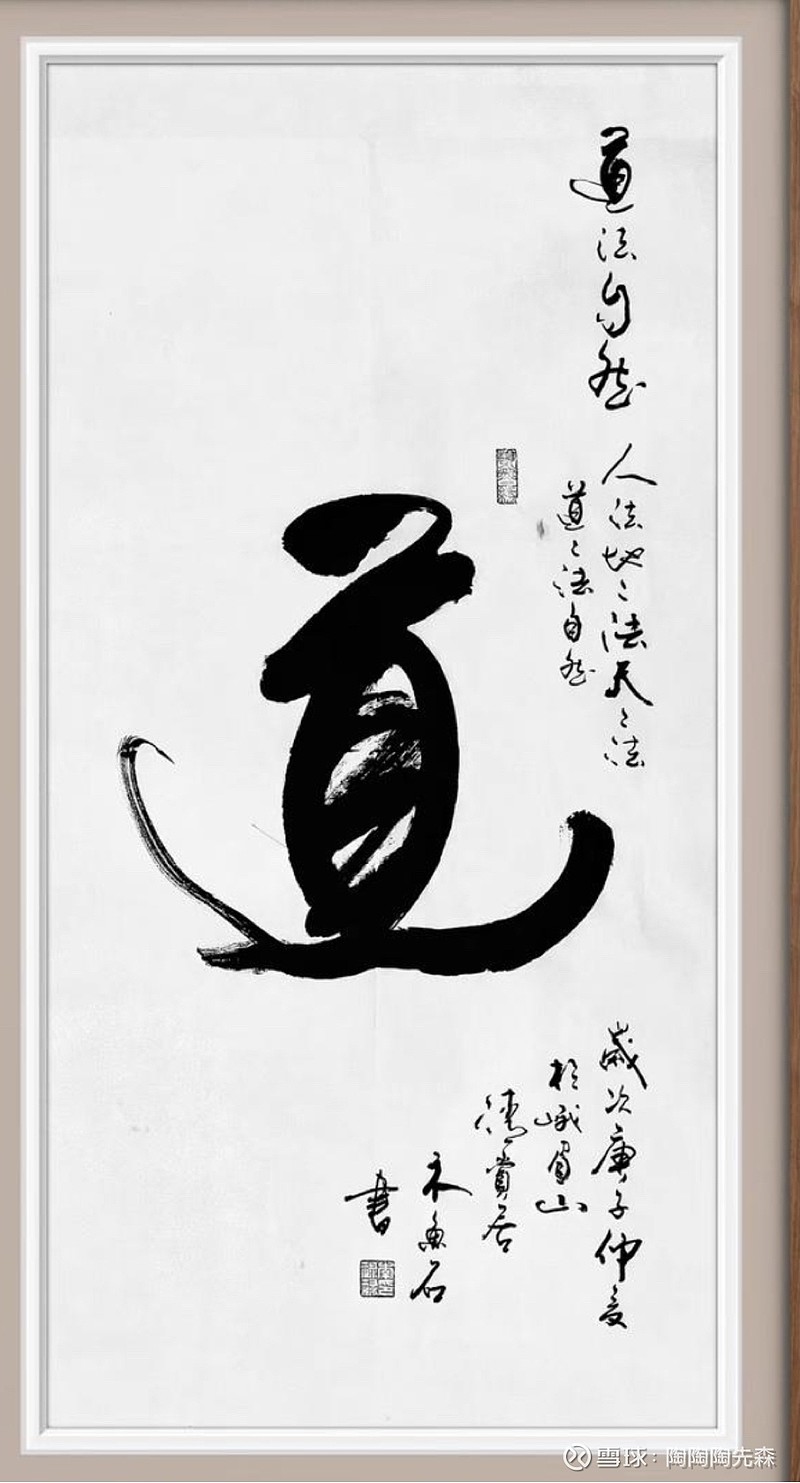 道法自然
人法地々法天々法
道々法自然
道
歲次庚子仲夏
於峨眉山
賞居
木魚石
書
雪球：陶陶陶先森